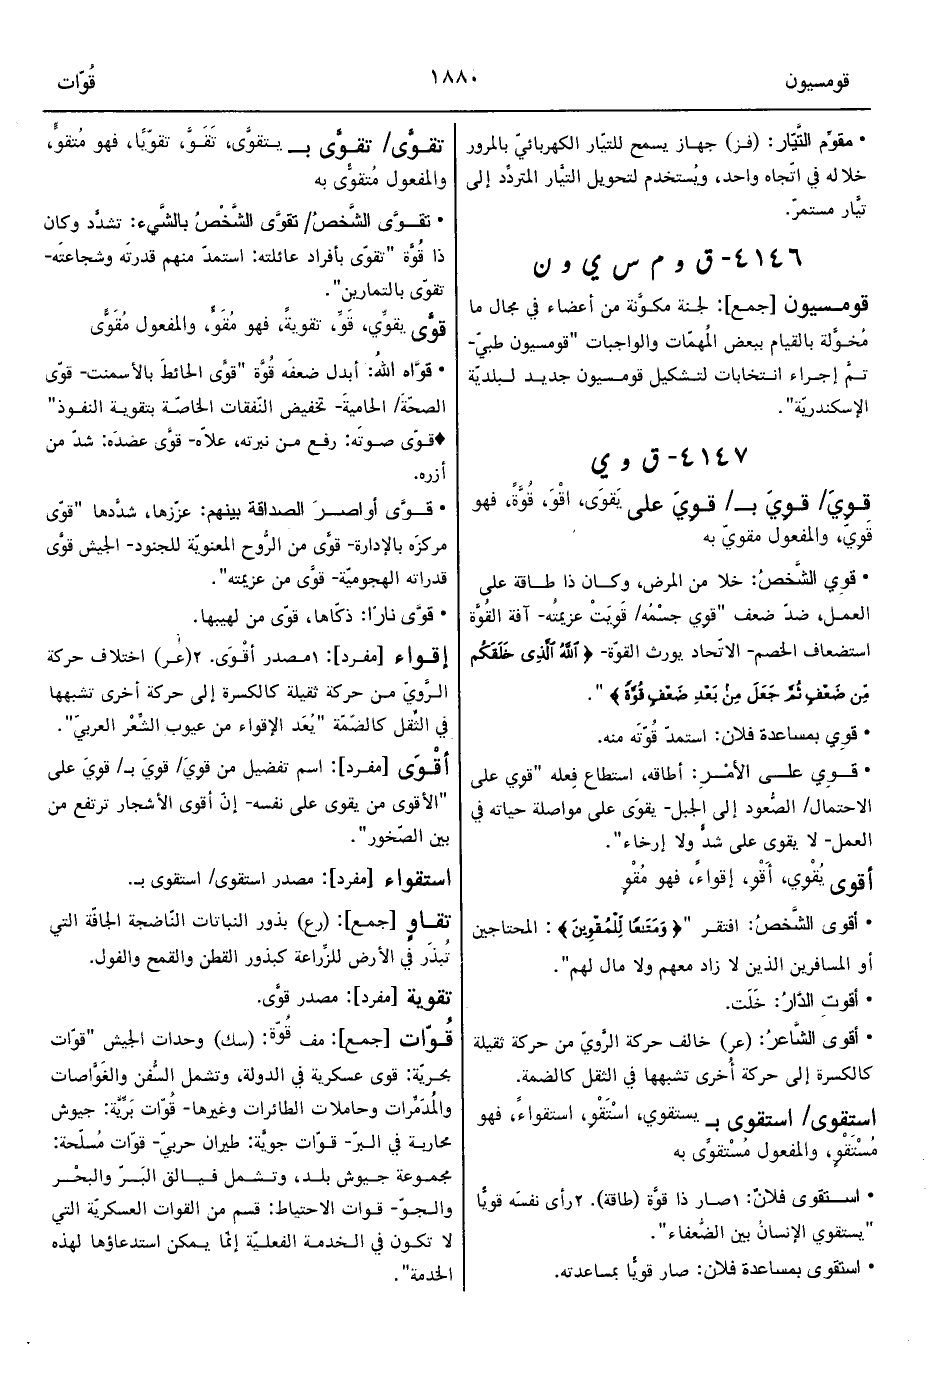 قومسيون
١٨٨٠
قُوّات
• مقوِّم التَّيّار: (فز) جهاز يسمح للتيّار الكهربائيّ بالمرور
خلاله في اتّجاه واحد، ويُستخدم لتحويل التيَّار المتردِّد إلى
تيَّار مستمرّ.
٤١٤٦- ق و م س ي و ن
قومسيون [جمع]: لجنة مكوَّنة من أعضاء في مجال ما
مُخوَّلة بالقيام ببعض المُهمّات والواجبات "قومسيون طبيّ-
تمَّ إجراء انتخابات لتشكيل قومسيون جديد لبلديّة
الإسكندريّة".
٤١٤٧- ق و ي
قويَ/ قويَ بـ/ قويَ على يَقوَى، اقْوَ، قُوَّةً، فهو
قَوِيّ، والمفعول مقويّ به
• قوي الشَّخصُ: خلا من المرض، وكان ذا طاقة على
العمل، ضدّ ضعف "قوي جسْمُه/ قَوِيَتْ عزيمتُه- آفة القُوَّة
استضعاف الخصم- الاتّحاد يورث القوّة- ﴿ اللَّهُ الَّذِي خَلَقَكُم
مِّن ضَعْفٍ ثُمَّ جَعَلَ مِنْ بَعْدِ ضَعْفٍ قُوَّةً ﴾ ".
• قوِي بمساعدة فلان: استمدّ قُوّتَه منه.
• قوي على الأمْرِ: أطاقه، استطاع فِعله "قوي على
الاحتمال/ الصُّعود إلى الجبل- يقوَى على مواصلة حياته في
العمل- لا يقوى على شدٍّ ولا إرخاء".
أقوى يُقْوِي، أَقْوِ، إقواءً، فهو مُقْوٍ
• أقوى الشَّخصُ: افتقر "﴿ وَمَتَاعًا لِّلْمُقْوِينَ ﴾ : المحتاجين
أو المسافرين الذين لا زاد معهم ولا مال لهم".
• أقوت الدَّارُ: خَلَت.
• أقوى الشَّاعرُ: (عر) خالف حركة الرَّويّ من حركة ثقيلة
كالكسرة إلى حركة أُخرى تشبهها في الثقل كالضمة.
استقوى/ استقوى بـ يستقوي، اسْتَقْوِ، استقواءً، فهو
مُسْتَقْوٍ، والمفعول مُسْتقوًى به
• استقوى فلانٌ: ١صار ذا قوَّة (طاقة). ٢رأى نفسَه قويًّا
"يستقوي الإنسانُ بين الضُّعفاء".
• استقوى بمساعدة فلان: صار قويًّا بمساعدته.
تقوَّى/ تقوَّى بـ يتقوَّى، تَقَوَّ، تقوّيًا، فهو مُتقوٍّ،
والمفعول مُتقوًّى به
• تقوَّى الشَّخصُ/ تقوَّى الشَّخْصُ بالشَّيء: تشدَّد وكان
ذا قُوَّة "تقوّى بأفراد عائلته: استمدّ منهم قدرتَه وشجاعتَه-
تقوّى بالتمارين".
قوَّى يقوِّي، قَوِّ، تقويةً، فهو مُقَوٍّ، والمفعول مُقوًّى
• قوَّاه اللهُ: أبدل ضعفَه قُوَّة "قوَّى الحائطَ بالأسمنت- قوّى
الصحّةَ/ الحاميةَ- تخفيض النّفقات الخاصّة بتقوية النفوذ"
♦قوّى صوتَه: رفع من نبرته، علاّه- قوَّى عضدَه: شدّ من
أزره.
• قوَّى أواصرَ الصداقة بينهم: عزّزها، شدّدها "قوّى
مركزَه بالإدارة- قوَّى من الرُّوح المعنويّة للجنود- الجيش قوَّى
قدراته الهجوميّة- قوَّى من عزيمته".
• قوَّى نارًا: ذكّاها، قوّى من لهيبها.
إقواء [مفرد]: ١مصدر أقْوَى. ٢(عر) اختلاف حركة
الرَّويّ من حركة ثقيلة كالكسرة إلى حركة أخرى تشبهها
في الثِّقل كالضّمّة "يُعَد الإقواء من عيوب الشِّعْر العربيّ".
أقْوَى [مفرد]: اسم تفضيل من قويَ/ قويَ بـ/ قويَ على
"الأقوى من يقوى على نفسه- إنّ أقوى الأشجار ترتفع من
بين الصّخور".
استقواء [مفرد]: مصدر استقوى/ استقوى بـ.
تقاوٍ [جمع]: (رع) بذور النباتات النّاضجة الجافّة التي
تُبذَر في الأرض للزّراعة كبذور القطن والقمح والفول.
تقوية [مفرد]: مصدر قوَّى.
قُوّات [جمع]: مف قُوّة: (سك) وحدات الجيش "قوّات
بحريّة: قوى عسكرية في الدولة، وتشمل السُّفن والغَوَّاصات
والمُدَمِّرات وحاملات الطائرات وغيرها- قُوّات بَرِّيَّة: جيوش
محاربة في البرّ- قوّات جويَّة: طيران حربيّ- قوّات مُسلّحة:
مجموعة جيوش بلد، وتشمل فيالق البَرّ والبحْر
والجوّ- قوات الاحتياط: قسم من القوات العسكريّة التي
لا تكون في الخدمة الفعليّة إنّما يمكن استدعاؤها لهذه
الخدمة".